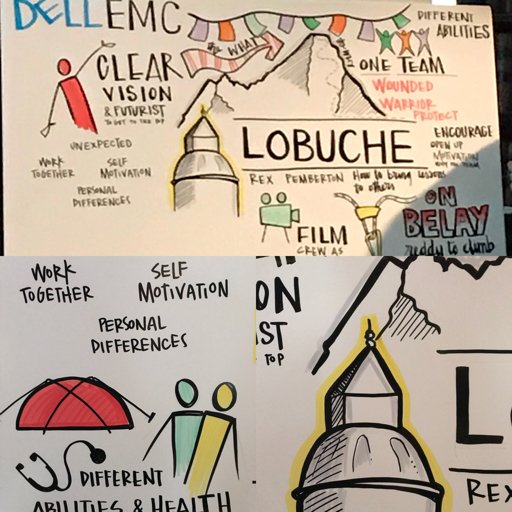 DELL EMC
CLEAR
VISION
& FUTURIST
TO GET TO THE TOP
UNEXPECTED
WORK
TOGETHER
SELF
MOTIVATION
PERSONAL
DIFFERENCES
WHAT
DIFFERENT
ABILITIES
ONE TEAM
WOUNDED
WARRIOR
PROTECT
LOBUCHE
REX PEMBERTON
How to bring lessons
to others
ENCOURAGE
OPEN UP
MOTIVATION
ON
BELAY
ready to climb
FILM
CREW AS
WORK
TOGETHER
SELF
MOTIVATION
PERSONAL
DIFFERENCES
DIFFERENT
ABILITIES & HEALTH
ON
ST
TOP
L
REX